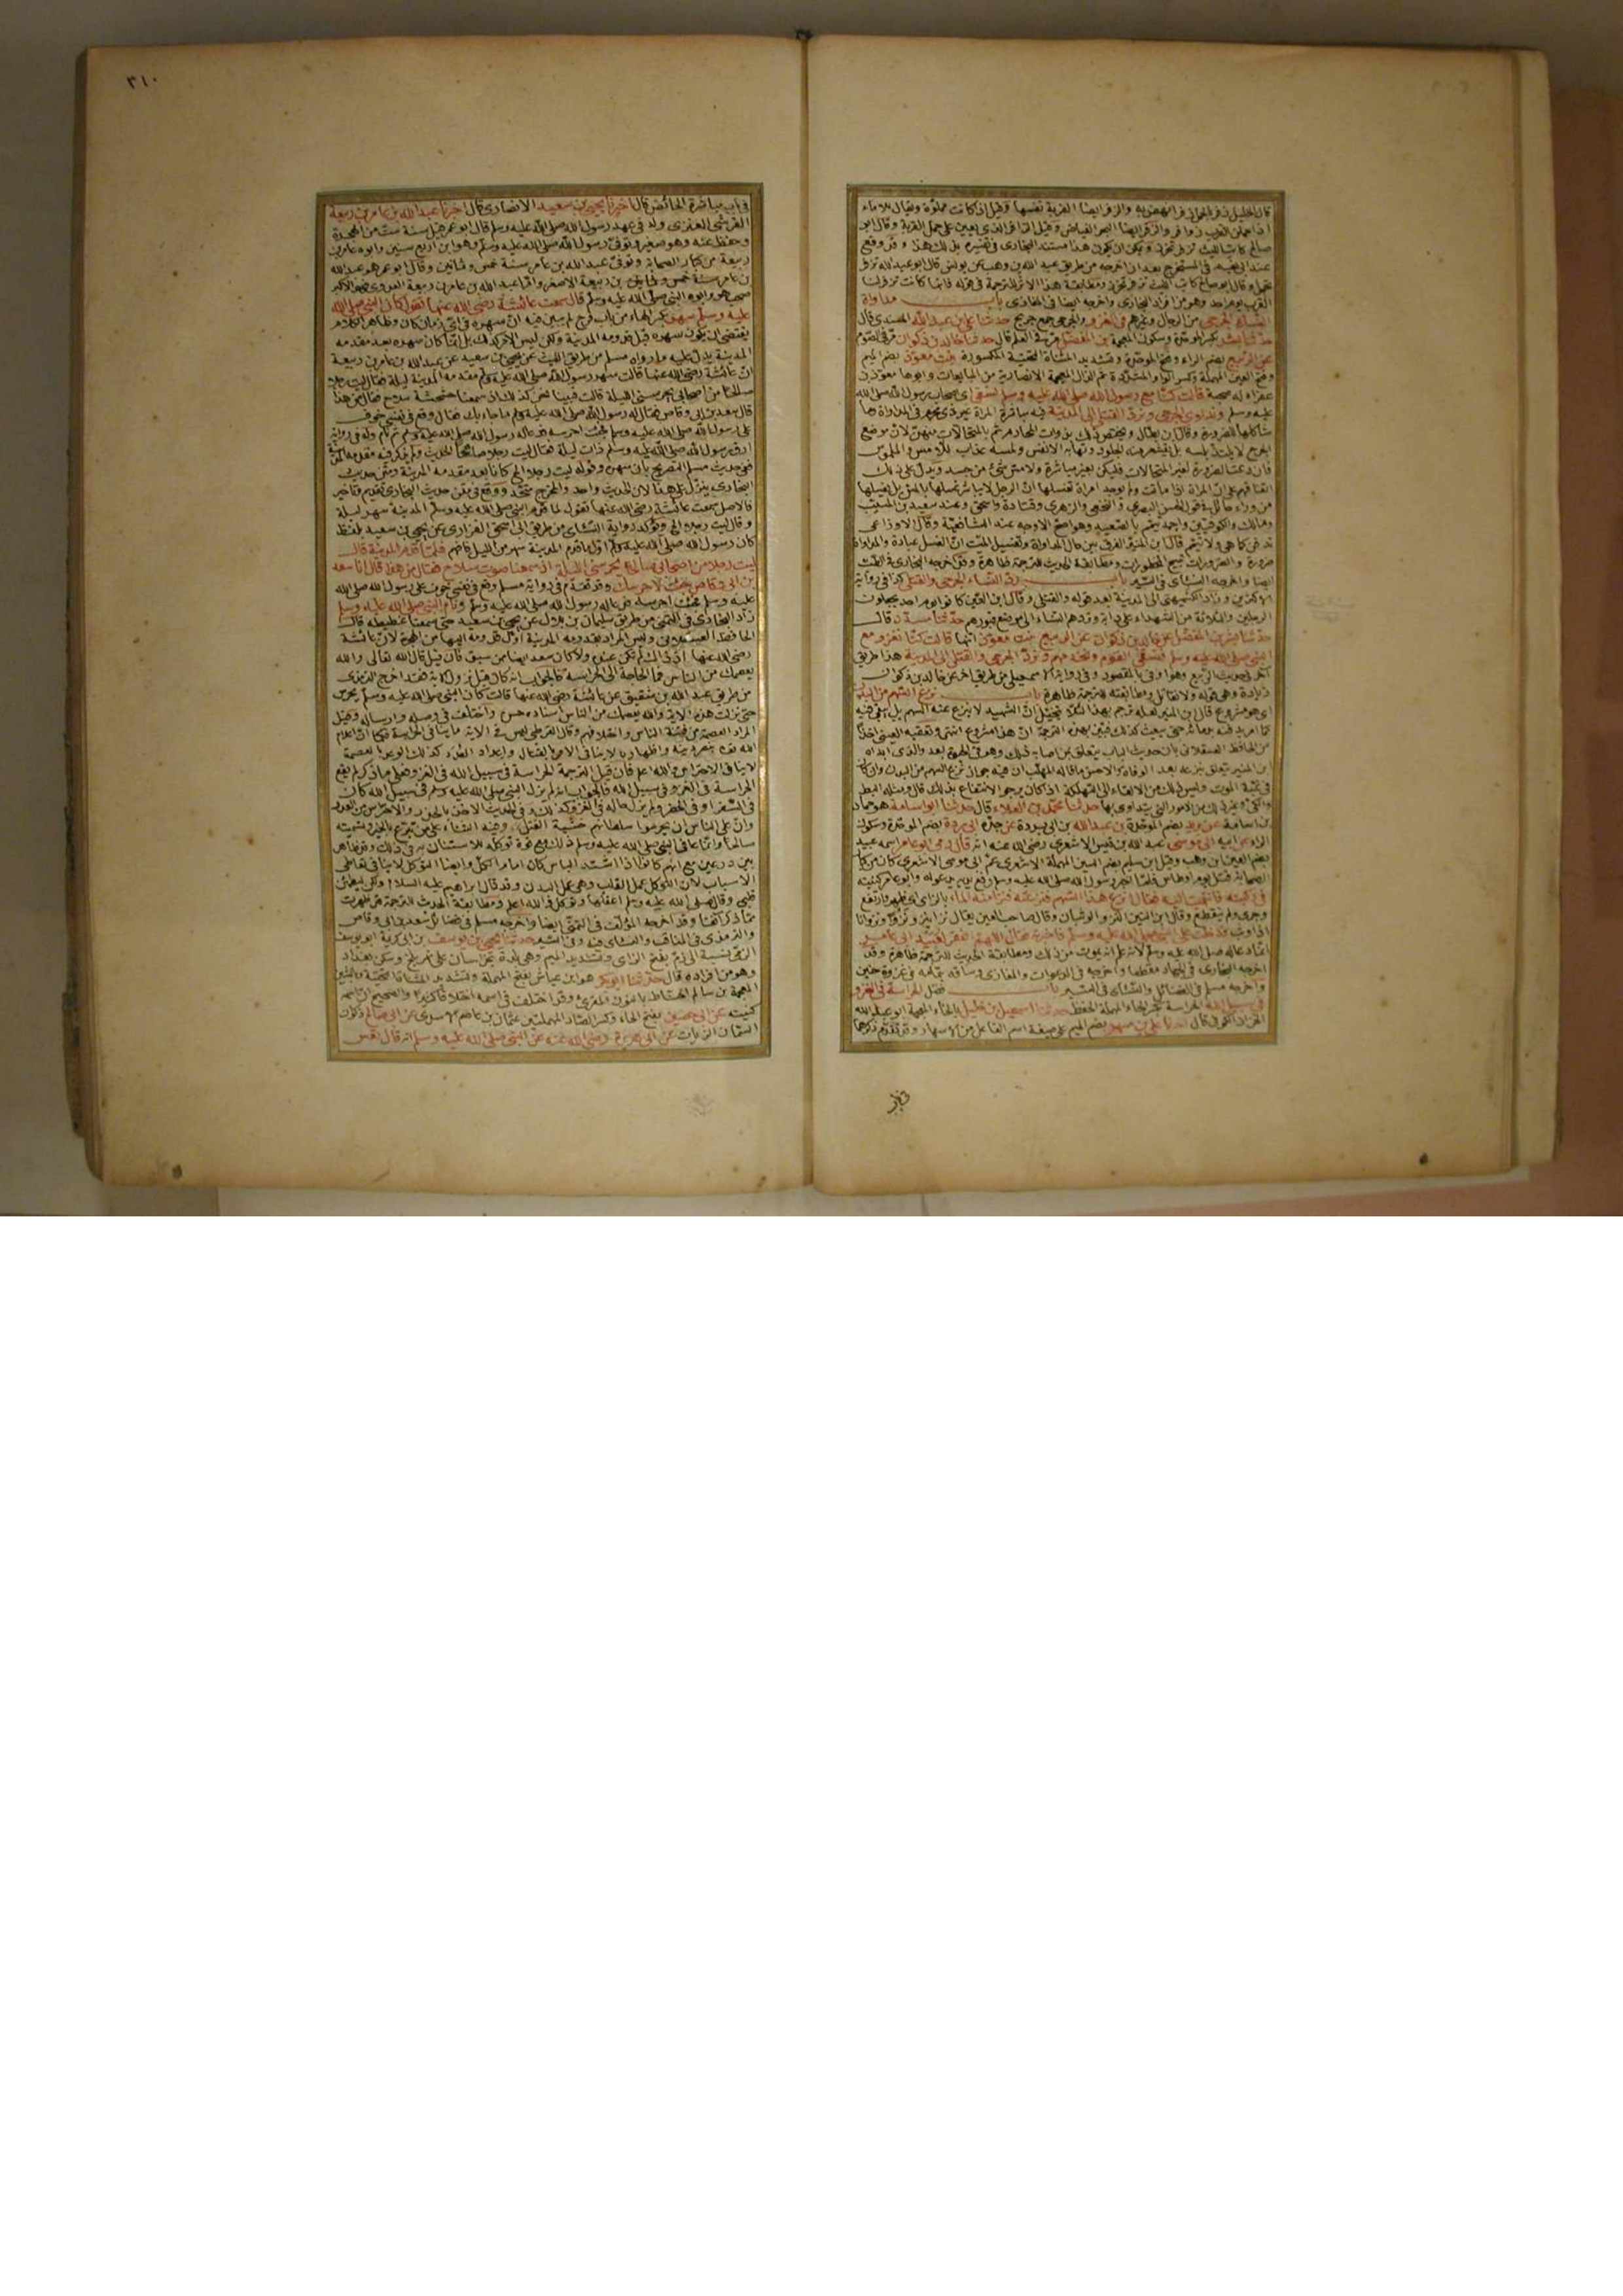 قال الخليل زفر الحمل زفرا نهض به والزفر ايضا القربة نفسها وقيل اذا كانت مملوة ويقال للاماء
اذا حملن القرب زوافر والزفر ايضا البحر الفياض وقيل الزافر الذي يعين على حمل القربة وقال ابو
صالح كاتب الليث تزفر تخرز ويمكن ان يكون هذا مستند البخاري في تفسيره بذلك هذا وقد وقع
القرب يوم احد وهو من افراد البخاري واخرجه ايضا في المغازي باب مداواة
النساء الجرحى من الرجال وغيرهم في الغزو والجرحى جمع جريح حدثنا علي بن عبد الله المسندي قال
حدثنا بشر بكسر الموحدة وسكون المعجمة بن المفضل مر في العلم قال حدثنا خالد بن ذكوان مر في الصوم
عن الربيع بضم الراء وفتح الموحدة وتشديد المثناة التحتية المكسورة بنت معوذ بضم الميم
وفتح العين المهملة وكسر الواو المشددة ثم الذال المعجمة الانصارية من المبايعات وابوها معوذ بن
عفراء له صحبة قالت كنا مع رسول الله صلى الله عليه وسلم نسقي اي اصحاب رسول الله صلى الله
عليه وسلم ونداوي الجرحى ونرد القتلى الى المدينة فيه مباشرة المراة غير ذي محرم في المداواة وما
شاكلها للضرورة وقال ابن بطال ويختص ذلك بذوات المحارم ثم بالمتجالات منهن لان موضع
الجرح لا يلتذ بلمسه بل يقشعر منه الجلود وتهابه الانفس ولمسه عذاب للامس والملموس
فان دعت الضرورة لغير المتجالات فليكن بغير مباشرة ولا مس شيء من جسد ويدل على ذلك
اتفاقهم على ان المراة اذا ماتت ولم يوجد امراة تغسلها ان الرجل لا يباشر غسلها بالمس بل يغسلها
من وراء حائل في قول الحسن البصري والنخعي والزهري وقتادة واسحق وعند سعيد بن المسيب
ومالك والكوفيين واحمد تيمم بالصعيد وهو اصح الاوجه عند الشافعية وقال الاوزاعي
تدفن كما هي ولا تيمم قال ابن المنير الفرق بين حال المداواة وتغسيل الميت ان الغسل عبادة والمداواة
ضرورة والضرورات تبيح المحظورات ومطابقة الحديث للترجمة ظاهرة وقد اخرجه البخاري في الطب
ايضا واخرجه النسائي في السير باب رد النساء الجرحى والقتلى كذا في رواية
الاكثرين وزاد الكشميهني الى المدينة بعد قوله والقتلى وقال ابن التين كانوا يوم احد يجعلون
الرجلين والثلاثة من الشهداء على دابة وتردهم النساء الى موضع قبورهم حدثنا مسدد قال
حدثنا بشر بن المفضل عن خالد بن ذكوان عن الربيع بنت معوذ انها قالت كنا نغزو مع
النبي صلى الله عليه وسلم فنسقي القوم ونخدمهم ونرد الجرحى والقتلى الى المدينة هذا طريق
زيادة وهي قوله ولا نقاتل ومطابقته للترجمة ظاهرة باب نزع السهم من البدن
اي هو مشروع قال ابن المنير لعله ترجم بهذا لئلا يتخيل ان الشهيد لا ينزع عنه السهم بل يبقى فيه
كما امر بدفنه بدمائه حتى يبعث كذلك فبين بهذه الترجمة ان هذا مشروع انتهى وتعقبه العيني اخذا
من الحافظ العسقلاني بان حديث الباب يتعلق بمن اصابه ذلك وهو في الحيوة بعد والذي ابداه
ابن المنير يتعلق بنزعه بعد الوفاة والاحسن ما قاله المهلب ان فيه جواز نزع السهم من البدن وان كان
في غبه الموت وليس ذلك من الالقاء الى التهلكة اذا كان يرجو الانتفاع بذلك قال ومثله البط
والكي وغير ذلك من الامور التي يتداوى بها حدثنا محمد بن العلاء قال حدثنا ابو اسامة هو حماد
بن اسامة عن بريد بضم الموحدة بن عبد الله بن ابي بردة عن جده ابي بردة بضم الموحدة وسكون
الراء عن ابيه ابي موسى عبد الله بن قيس الاشعري رضي الله عنه انه قال رمي ابو عامر اسمه عبيد
بضم العين ابن وهب وقيل ابن سليم بضم السين المهملة الاشعري عم ابي موسى الاشعري كان من كبار
الصحابة قتل يوم اوطاس فلما اخبر رسول الله صلى الله عليه وسلم رفع يديه يدعو له وابو عامر كنيته
في ركبته فانتهيت اليه فقال انزع هذا السهم فنزعته فنزا منه الماء بالزاي اي ظهر وارتفع
وجرى ولم ينقطع وقال ابن التين النزو الوثبان وقال صاحب العين يقال نزا ينزو نزوا ونزوانا
اذا وثب فدخلت على النبي صلى الله عليه وسلم فاخبرته فقال اللهم اغفر لعبيد ابي عامر
انما دعا له صلى الله عليه وسلم لانه علم انه يموت من ذلك ومطابقة الحديث للترجمة ظاهرة وقد
اخرجه البخاري في الجهاد مقطعا واخرجه في الدعوات والمغازي وساقه بتمامه في غزوة حنين
واخرجه مسلم في الفضائل والنسائي في السير باب فضل الحراسة في الغزو
في سبيل الله الحراسة بكسر الحاء المهملة الحفظ حدثنا اسمعيل بن خليل بالخاء المعجمة ابو عبد الله
الخزاز الكوفي قال اخبرنا علي بن مسهر بضم الميم على صيغة اسم الفاعل من الاسهار وقد تقدم ذكرهما
٣١٠
في باب مباشرة الحائض قال اخبرنا يحيى بن سعيد الانصاري قال اخبرنا عبد الله بن عامر بن ربيعة
القرشي العنزي ولد في عهد رسول الله صلى الله عليه وسلم قال ابو عمر قيل سنة ست من الهجرة
وحفظ عنه وهو صغير وتوفي رسول الله صلى الله عليه وسلم وهو ابن اربع سنين وابوه عامر بن
ربيعة من كبار الصحابة وتوفي عبد الله بن عامر سنة خمس وثمانين وقال ابو عمر هو عبد الله
بن عامر بن ربيعة الاصغر واما عبد الله بن عامر بن ربيعة العدوي فهو الاكبر
صحب هو وابوه النبي صلى الله عليه وسلم قال سمعت عائشة رضي الله عنها تقول كان النبي صلى الله
عليه وسلم سهر بكسر الهاء من باب فرح لم يبين فيه ان سهره في اي زمان كان وظاهر الكلام
يقتضي ان يكون سهره قبل قدومه المدينة ولكن ليس الامر كذلك بل انما كان سهره بعد مقدمه
المدينة يدل عليه ما رواه مسلم من طريق الليث عن يحيى بن سعيد عن عبد الله بن عامر بن ربيعة
ان عائشة رضي الله عنها قالت سهر رسول الله صلى الله عليه وسلم مقدمه المدينة ليلة فقال ليت رجلا
صالحا من اصحابي يحرسني الليلة قالت فبينا نحن كذلك اذ سمعنا خشخشة سلاح فقال من هذا
قال سعد بن ابي وقاص فقال له رسول الله صلى الله عليه وسلم ما جاء بك فقال وقع في نفسي خوف
على رسول الله صلى الله عليه وسلم فجئت احرسه فدعا له رسول الله صلى الله عليه وسلم ثم نام وله في رواية
ارق رسول الله صلى الله عليه وسلم ذات ليلة فقال ليت رجلا صالحا الحديث ولم يذكر فيه مقدمه المدينة
ففي حديث مسلم التصريح بان سهره وقوله ليت رجلا الخ كانا بعد مقدمه المدينة ومتن حديث
البخاري ينزل على هذا لان الحديث واحد والمخرج متحد ووقع في متن حديث البخاري تقديم وتاخير
فالاصل سمعت عائشة رضي الله عنها تقول لما قدم النبي صلى الله عليه وسلم المدينة سهر ليلة
وقال ليت رجلا الخ ويؤكد رواية النسائي من طريق ابي اسحق الفزاري عن يحيى بن سعيد بلفظ
كان رسول الله صلى الله عليه وسلم اول ما قدم المدينة سهر من الليل فلما قدم المدينة قال
ليت رجلا من اصحابي صالحا يحرسني الليلة اذ سمعنا صوت سلاح فقال من هذا قال انا سعد
بن ابي وقاص جئت لاحرسك وقد تقدم في رواية مسلم وقع في نفسي خوف على رسول الله صلى الله
عليه وسلم فجئت احرسه فدعا له رسول الله صلى الله عليه وسلم ونام النبي صلى الله عليه وسلم
زاد البخاري في التمني من طريق سليمان بن بلال عن يحيى بن سعيد حتى سمعنا غطيطه قال
الحافظ العسقلاني وليس المراد بقدومه المدينة اول قدومه اليها من الهجرة لان عائشة
رضي الله عنها اذ ذاك لم تكن عنده ولا كان سعد ايضا ممن سبق فان قيل قال الله تعالى والله
يعصمك من الناس فما الحاجة الى الحراسة فالجواب انه كان قبل نزول الاية فقد اخرج الترمذي
من طريق عبد الله بن شقيق عن عائشة رضي الله عنها قالت كان النبي صلى الله عليه وسلم يحرس
حتى نزلت هذه الاية والله يعصمك من الناس اسناده حسن واختلف في وصله وارساله وقيل
المراد العصمة من فتنة الناس واختلافهم وقال القرطبي ليس في الاية ما ينافي الحراسة كما ان اعلام
الله بنصر دينه واظهاره لا ينافي الامر بالقتال واعداد العدد كذلك الوعد بالعصمة
لا ينافي الاحتراس والله اعلم فان قيل الترجمة الحراسة في سبيل الله في الغزو وعلى ما ذكر لم يقع
الحراسة في الغزو في سبيل الله فالجواب انه لم يزل النبي صلى الله عليه وسلم في سبيل الله كان
في السفر او في الحضر ولم يزل حاله في الغزو كذلك وفي الحديث الاخذ بالحذر والاحتراس من العدو
وان على الناس ان يحرسوا سلطانهم خشية القتل وفيه الثناء على من تبرع بالخير وتسميته
صالحا وانما عانى النبي صلى الله عليه وسلم ذلك مع قوة توكله للاستنان به في ذلك وقد ظاهر
بين درعين مع انهم كانوا اذا اشتد الباس كان امام الكل وايضا التوكل لا ينافي تعاطي
الاسباب لان التوكل عمل القلب وهي عمل البدن وقد قال ابراهيم عليه السلام ولكن ليطمئن
قلبي وقال صلى الله عليه وسلم اعقلها وتوكل والله اعلم ومطابقة الحديث للترجمة قد ظهرت
مما ذكر آنفا وقد اخرجه المؤلف في التمني ايضا واخرجه مسلم في فضائل سعد بن ابي وقاص
والترمذي في المناقب والنسائي فيه وفي السير حدثنا يحيى بن يوسف بن ابي كريمة ابو يوسف
الزمي نسبة الى زم بفتح الزاي وتشديد الميم وهي بلدة بخراسان على نهر بلخ وسكن بغداد
وهو من افراده قال حدثنا ابو بكر هو ابن عياش بفتح المهملة وتشديد المثناة التحتية وبالشين
المعجمة بن سالم الحناط بالنون المقرئ وقد اختلف في اسمه اختلافا كثيرا والصحيح ان اسمه
كنيته عن ابي حصين بفتح الحاء وكسر الصاد المهملتين عثمان بن عاصم الاسدي عن ابي صالح ذكوان
السمان الزيات عن ابي هريرة رضي الله عنه عن النبي صلى الله عليه وسلم انه قال تعس